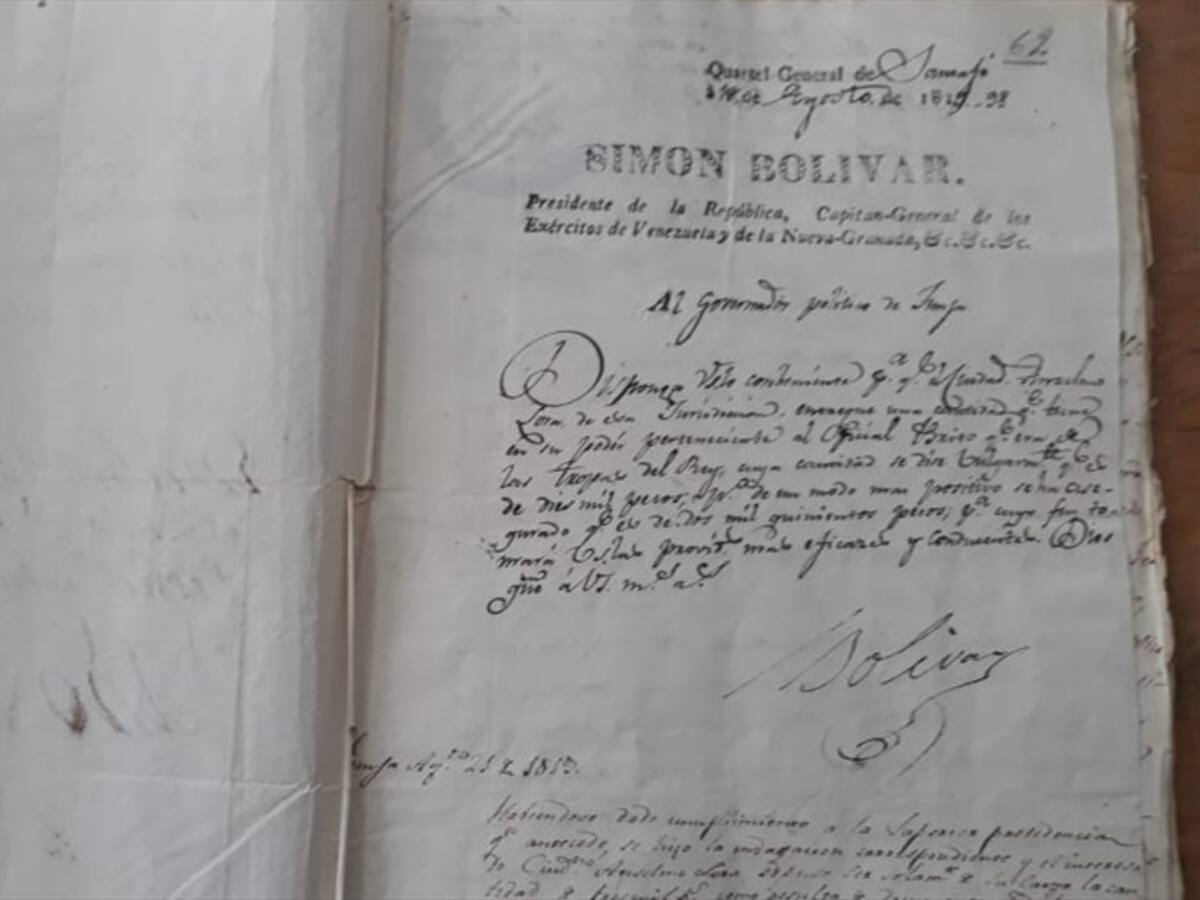 62.
Quartel General de Santafé
á 18. de Agosto. de 1819.-9º
SIMON BOLIVAR.
Presidente de la República, Capitan-General de los
Exércitos de Venezuela y de la Nueva-Granada, &c. &c. &c.
Al Governador político de Tunja
Dispong Vslo conveniente pª. q. el Ciudad.
Lora, de esa Jurisdiccion, entregue una cantidad q. tiene
en su podér perteneciente al Oficial q. era de
las tropas del Rey, cuya cantidad se dise bulgarmte. q. es
de dies mil pesos, y pª. de un modo mas positivo se há ase-
gurado q. es de dos mil quinientos pesos; pª. cuyo fin to
mará Vs. las provids. mas eficaces y conducentes. Dios
gue á VS. ms. as.
Bolivar
Tunja Agto. 21 1819.
Habiendose dado cumplimiento a la Superior providencia
q. antecede, se hizo la indagacion correspondiente y el interesa
do Ciudno. Anselmo Lora expuso ser solamte. la can
tidad